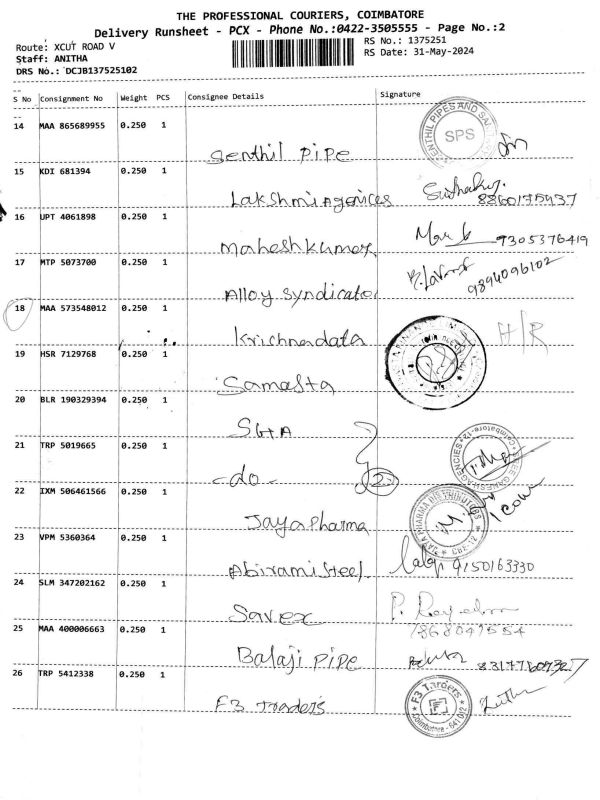 THE PROFESSIONAL COURIERS, COIMBATORE
Delivery Runsheet - PCX - Phone No.:0422-3505555 - Page No.:2
Route: XCUT ROAD V
RS No.: 1375251
Staff: ANITHA
RS Date: 31-May-2024
DRS No.: DCJB137525102
S No Consignment No Weight PCS Consignee Details Signature
14 MAA 865689955 0.250 1
SPS
Senthil Pipe
15 KDI 681394 0.250 1
Lakshmi Agenices 8860175937
16 UPT 4061898 0.250 1
Maheshkumar 9305376419
17 MTP 5073700 0.250 1
Alloy Syndicate 9894096102
18 MAA 573548012 0.250 1
Krichnadata H/R
19 HSR 7129768 0.250 1
Samasta
20 BLR 190329394 0.250 1
SGA
21 TRP 5019665 0.250 1
-do- 2
22 IXM 506461566 0.250 1
JAYA PHARMA DISTRIBUTORS
CBE-12
Jaya Pharma
23 VPM 5360364 0.250 1
Abirami Steel 9150163330
24 SLM 347202162 0.250 1
Savex
25 MAA 400006663 0.250 1
7868049554
Balaji Pipe 8317760932
26 TRP 5412338 0.250 1
F3 Tarders
Coimbatore - 641 012
F3 Traders